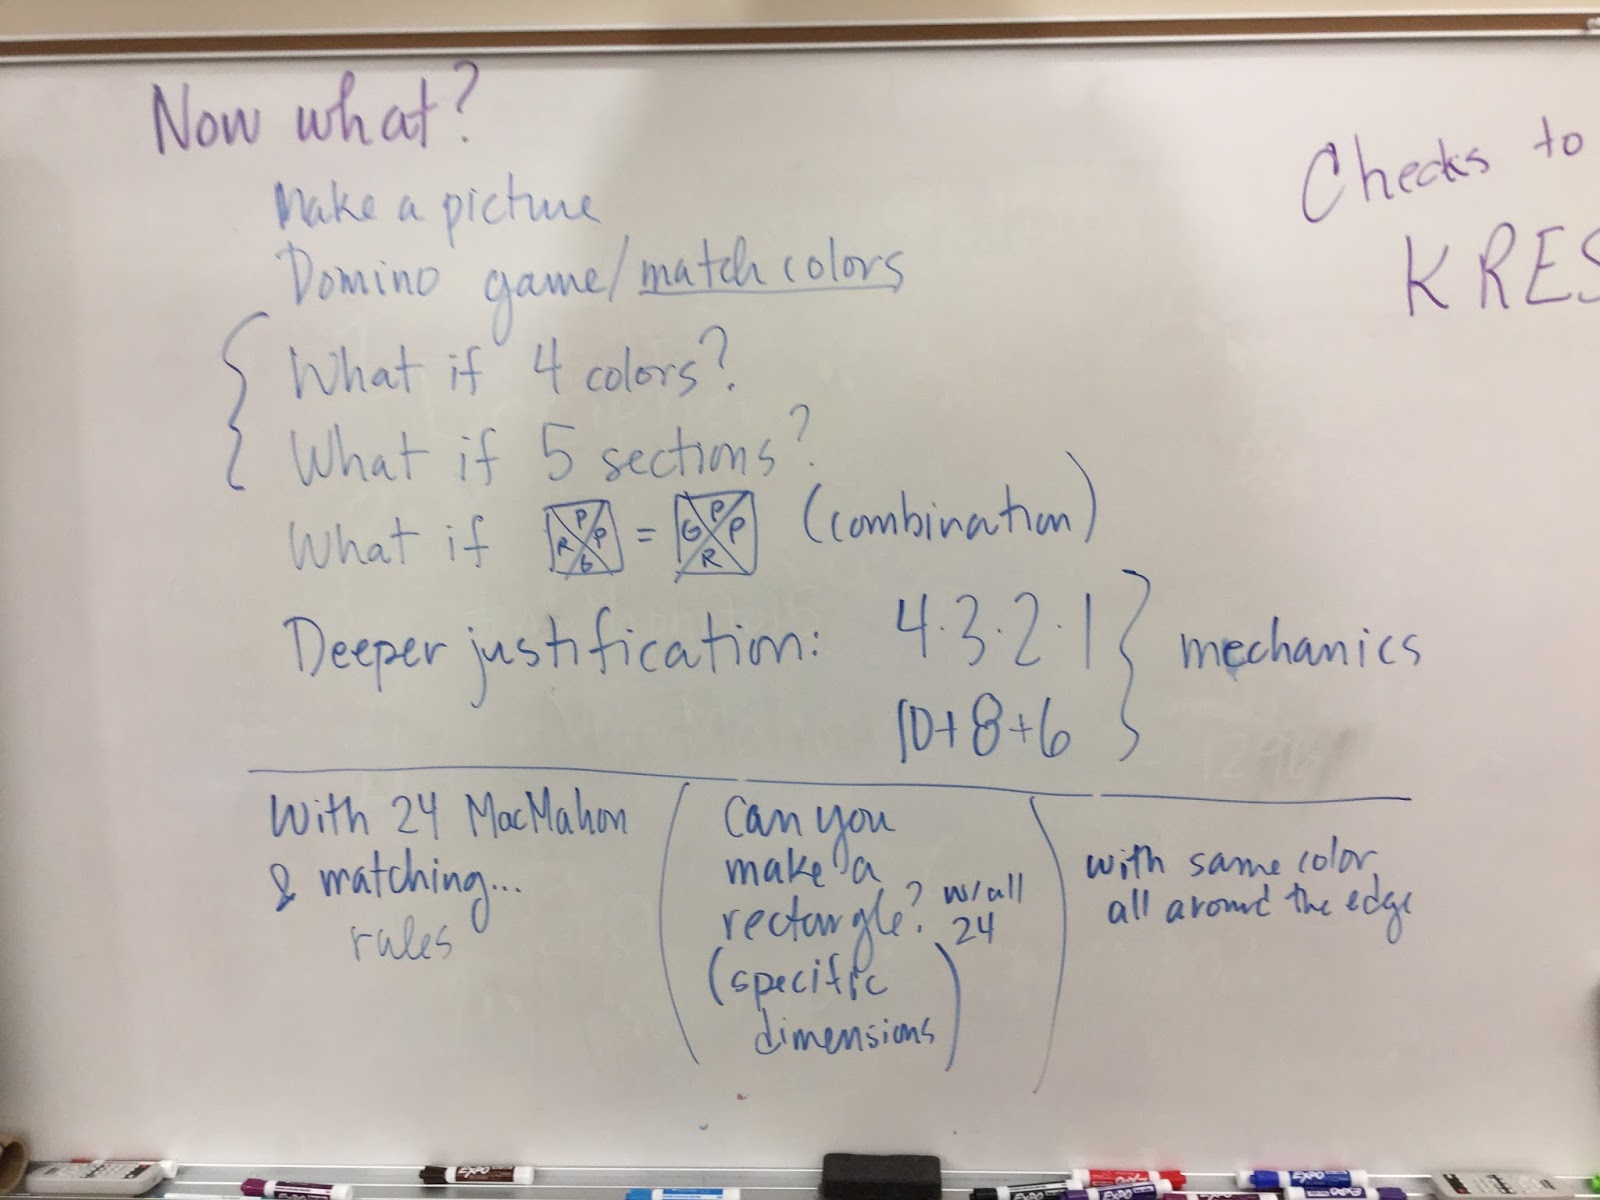 Now what?
Make a picture
Domino game/match colors
What if 4 colors?
What if 5 sections?
What if P R P G = P G P R (combination)
Deeper justification: 4·3·2·1 } mechanics
10+8+6
With 24 MacMahon
& matching...
rules
Can you
make a
rectangle? w/all
24
(specific
dimensions)
with same color
all around the edge
Checks to
KRES
EXPO
EXPO
EXPO
EXPO
EXPO